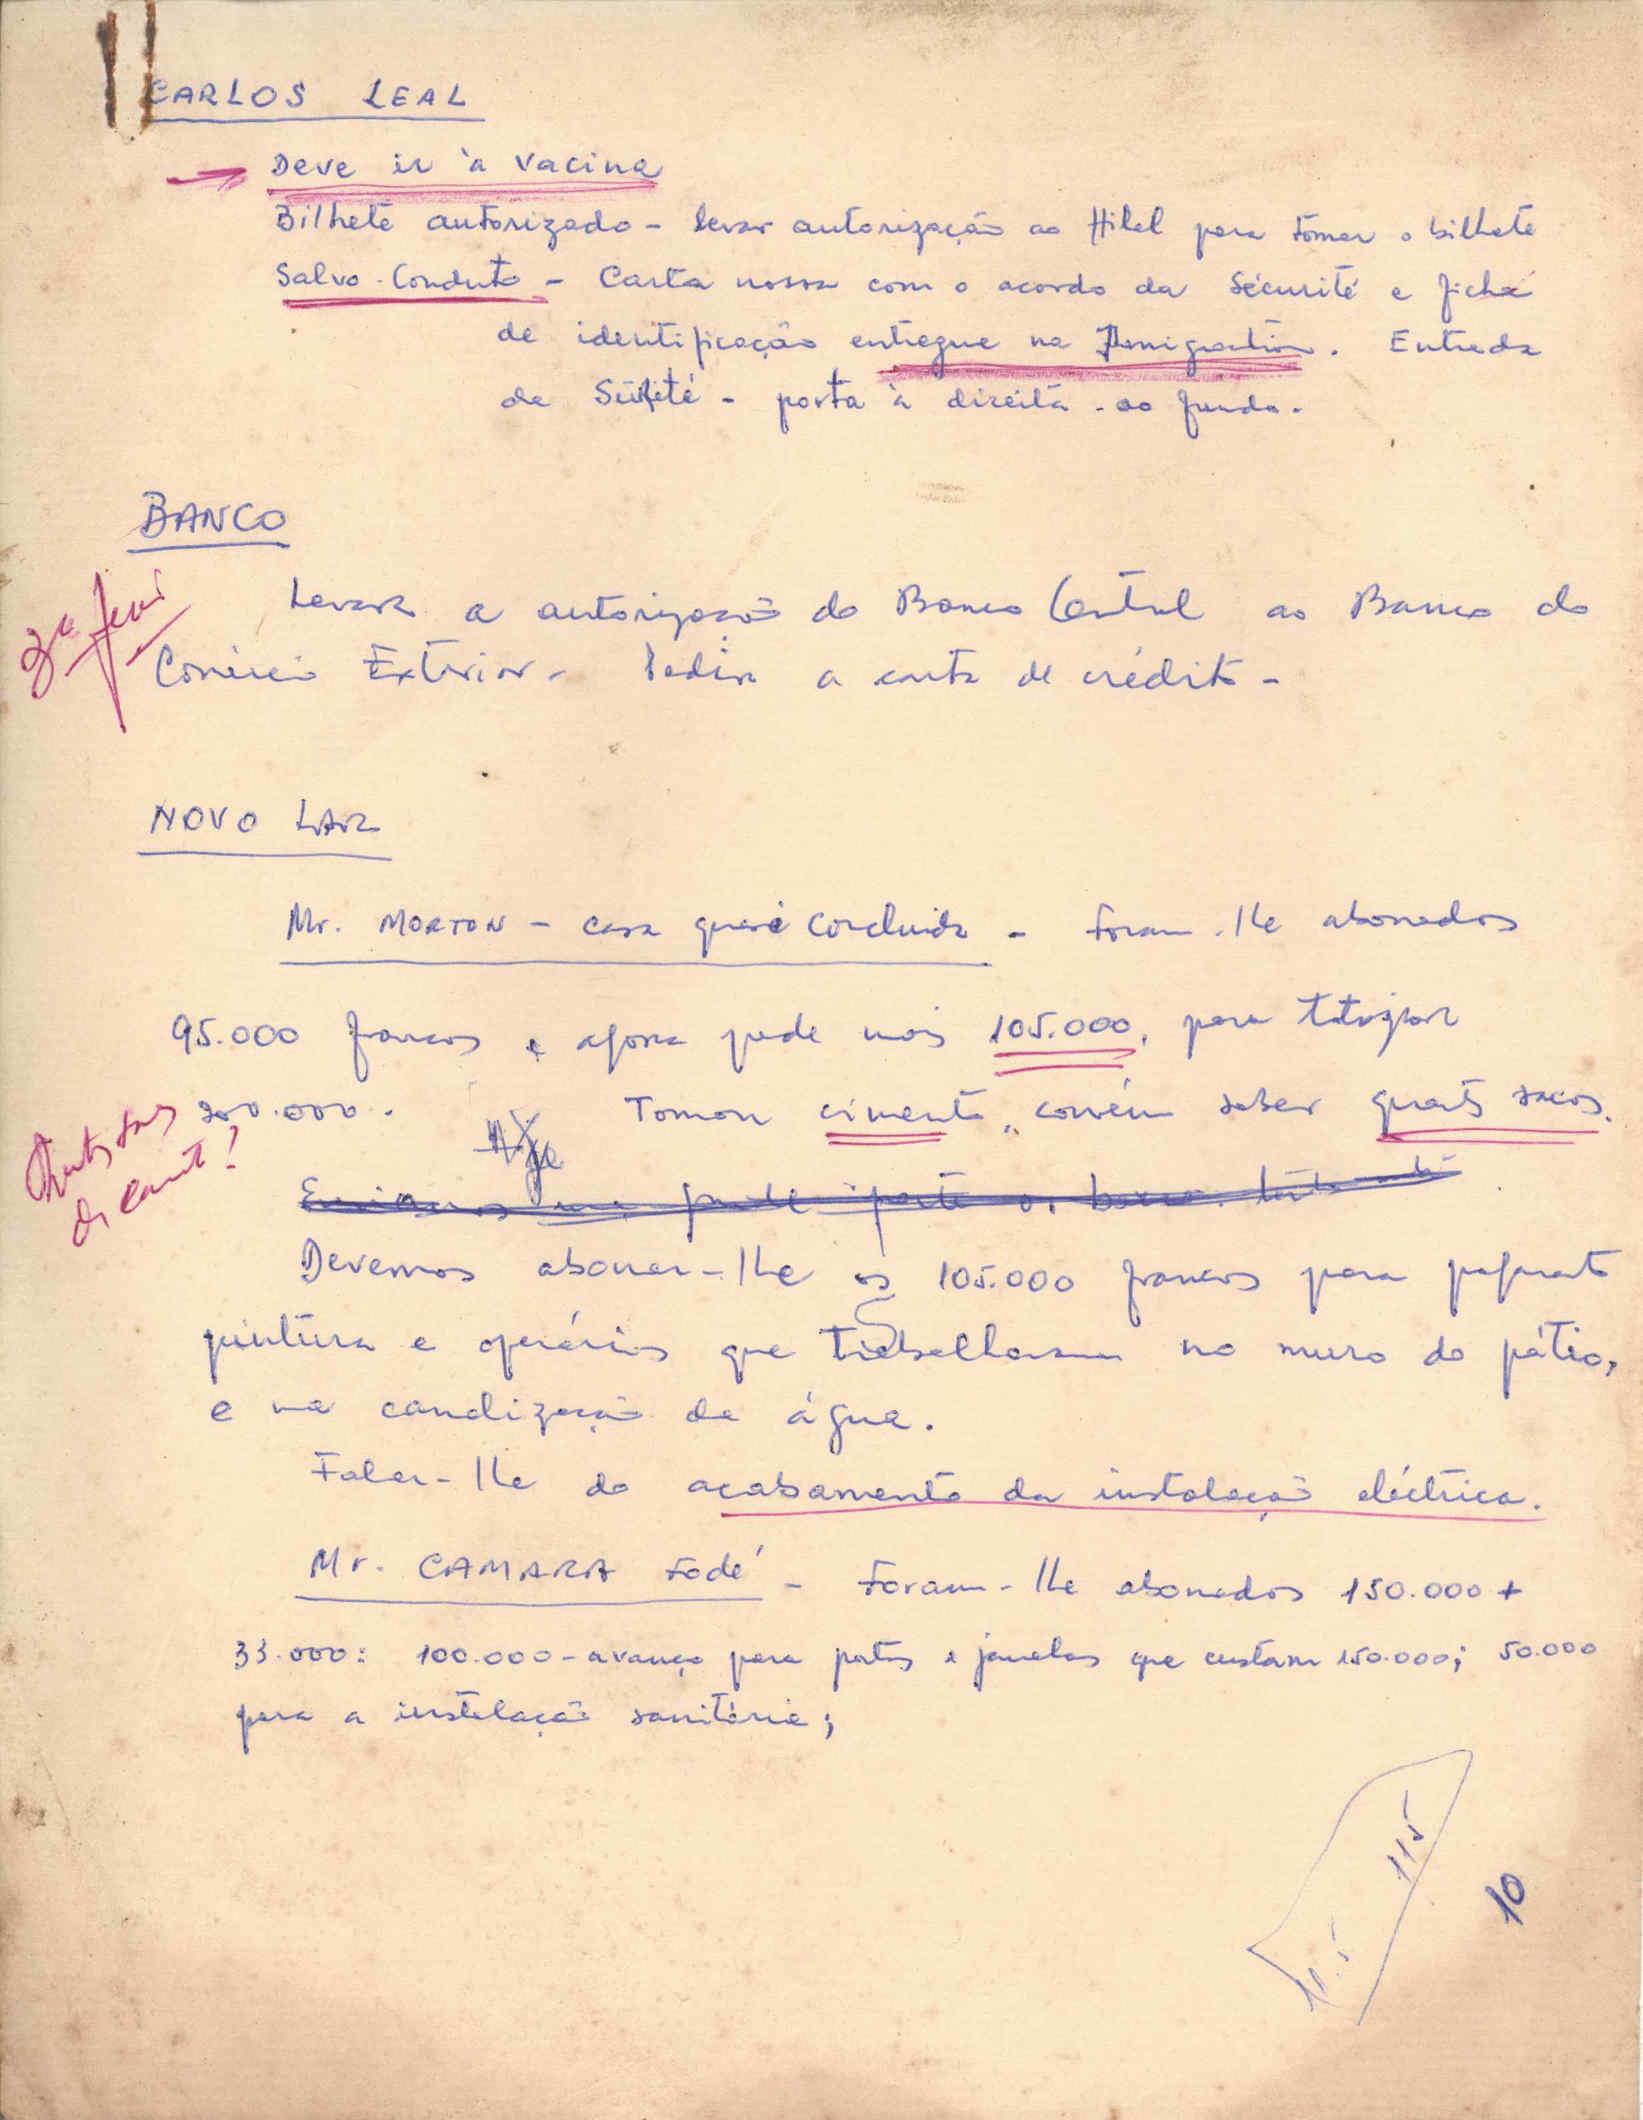 CARLOS LEAL
Deve ir à vacina
Bilhete autorizado - levar autorização ao Hilel para tomar o bilhete
Salvo-Conduto - Carta nossa com o acordo da Sécurité e ficha
de identificação entregue na Immigration. Entrada
da Sûreté - porta à direita - ao fundo.
BANCO
3ª feira
Levar a autorização do Banco Central ao Banco do
Comércio Exterior - Pedir a carta de crédito -
NOVO LAR
Mr. MORTON - casa quase concluida - Foram-lhe abonados
95.000 francos e agora pede mais 105.000, para totalizar
200.000. Tomou cimento, convém saber quants sacos.
Quants sacs
de cimt?
Devemos abonar-lhe os 105.000 francos para pagamento
pintura e operários que trabalharam no muro do pátio,
e na canalização da água.
Falar-lhe do acabamento da instalação eléctrica.
Mr. CAMARA Fodé - Foram-lhe abonados 150.000 +
33.000: 100.000 - avanço para portas e janelas que custam 150.000; 50.000
para a instalação sanitária;
115
10